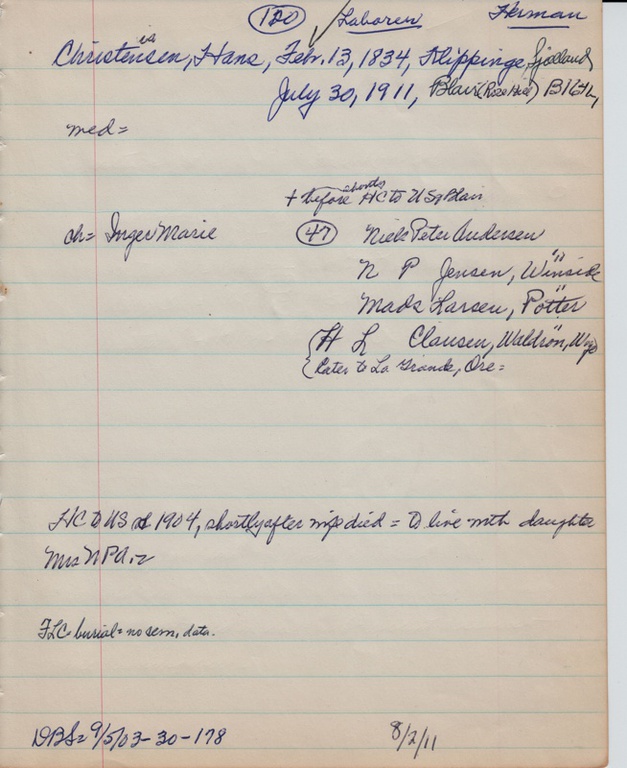 120 ✓ Laborer Herman
Christensen, Hans, Feb. 13, 1834, Klippinge, Sjolland
July 30, 1911, Blair (Rose Hill) BKGH,
med=
+ before HC to US Blair
shortly
ch= Inger Marie 47 Niels Peter Andersen
N P Jensen, Winside
Mads Larsen, Potter "
H L Clausen, Waldron, Wyo
(later to La Grande, Ore=
HC to US 1904, shortly after wife died = to live with daughter
Mrs NPA.=
FLC= burial= no sem. data.
DBS= 9/5/03-30-178 8/2/11